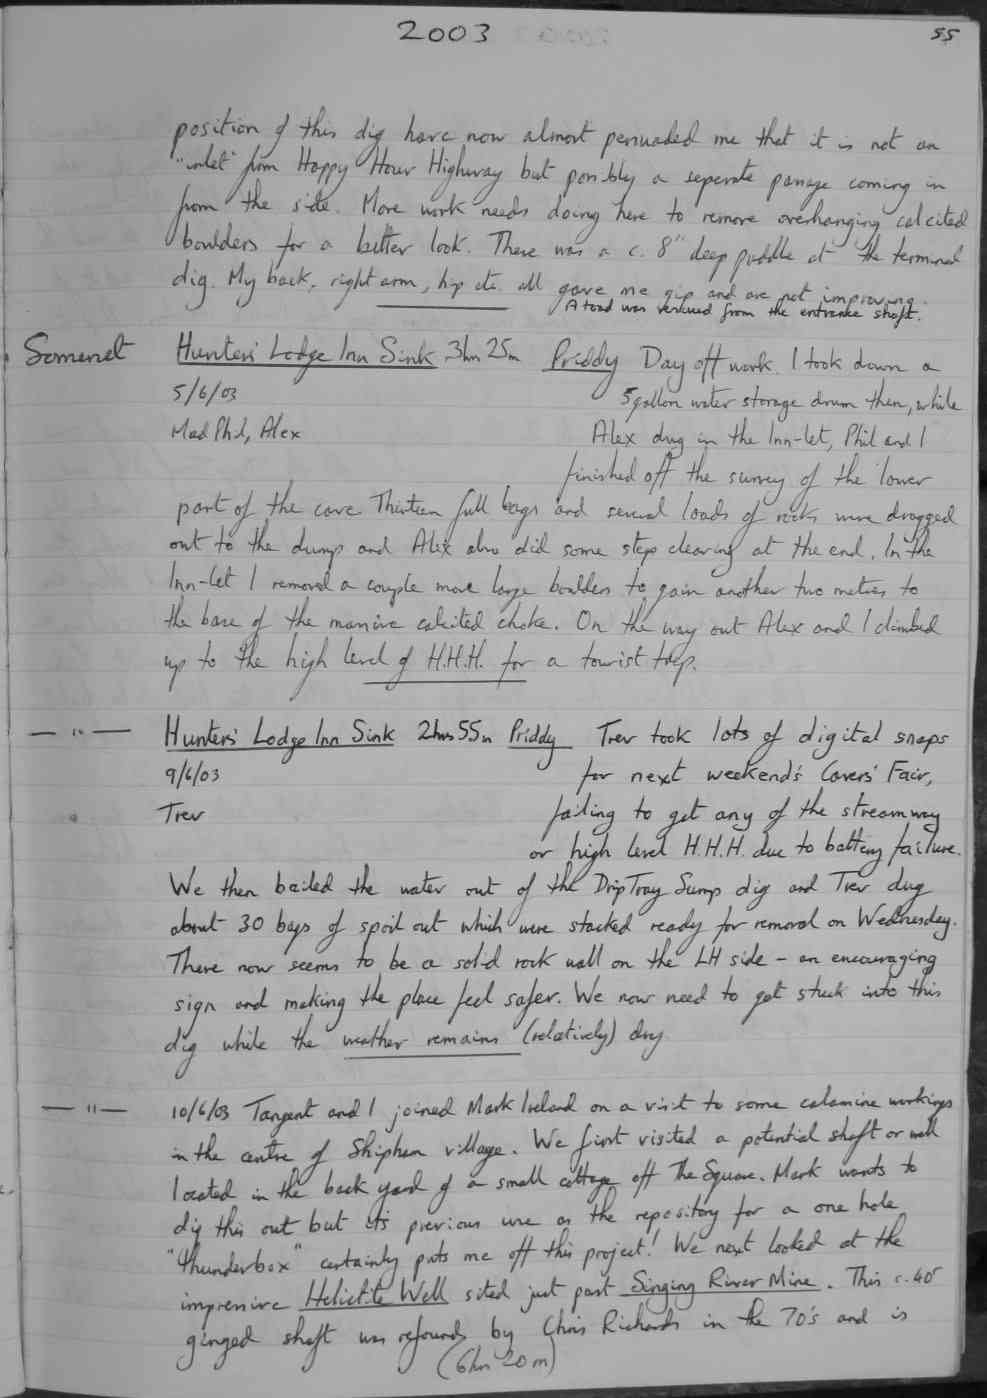 2003
55
position of this dig have now almost persuaded me that it is not an
"inlet" from Happy Hour Highway but possibly a seperate passage coming in
from the side. More work needs doing here to remove overhanging calcited
boulders for a better look. There was a c. 8" deep puddle at the terminal
dig. My back, right arm, hip etc. all gave me gip and are not improving.
A toad was rescued from the entrance shaft.
Somerset Hunters' Lodge Inn Sink 3hrs 25m Priddy Day off work. I took down a
5/6/03 5 gallon water storage drum then, while
Mad Phil, Alex Alex dug in the Inn-let, Phil and I
finished off the survey of the lower
part of the cave. Thirteen full bags and several loads of rocks were dragged
out to the dump and Alex also did some step clearing at the end. In the
Inn-let I removed a couple more large boulders to gain another two metres to
the base of the massive calcited choke. On the way out Alex and I climbed
up to the high level of H.H.H. for a tourist trip.
— " — Hunters' Lodge Inn Sink 2hrs 55m Priddy Trev took lots of digital snaps
9/6/03 for next weekend's Cavers' Fair,
Trev failing to get any of the streamway
or high level H.H.H. due to battery failure.
We then bailed the water out of the Drip Tray Sump dig and Trev dug
about 30 bags of spoil out which were stacked ready for removal on Wednesday.
There now seems to be a solid rock wall on the LH side - an encouraging
sign and making the place feel safer. We now need to get stuck into this
dig while the weather remains (relatively) dry.
— " — 10/6/03 Tangent and I joined Mark Ireland on a visit to some calamine workings
in the centre of Shipham village. We first visited a potential shaft or well
located in the back yard of a small cottage off The Square. Mark wants to
dig this out but its previous use as the repository for a one hole
"thunderbox" certainly puts me off this project! We next looked at the
impressive Helictite Well sited just past Singing River Mine. This c. 40'
ginged shaft was refound by Chris Richards in the 70's and is
(6hrs 20m)